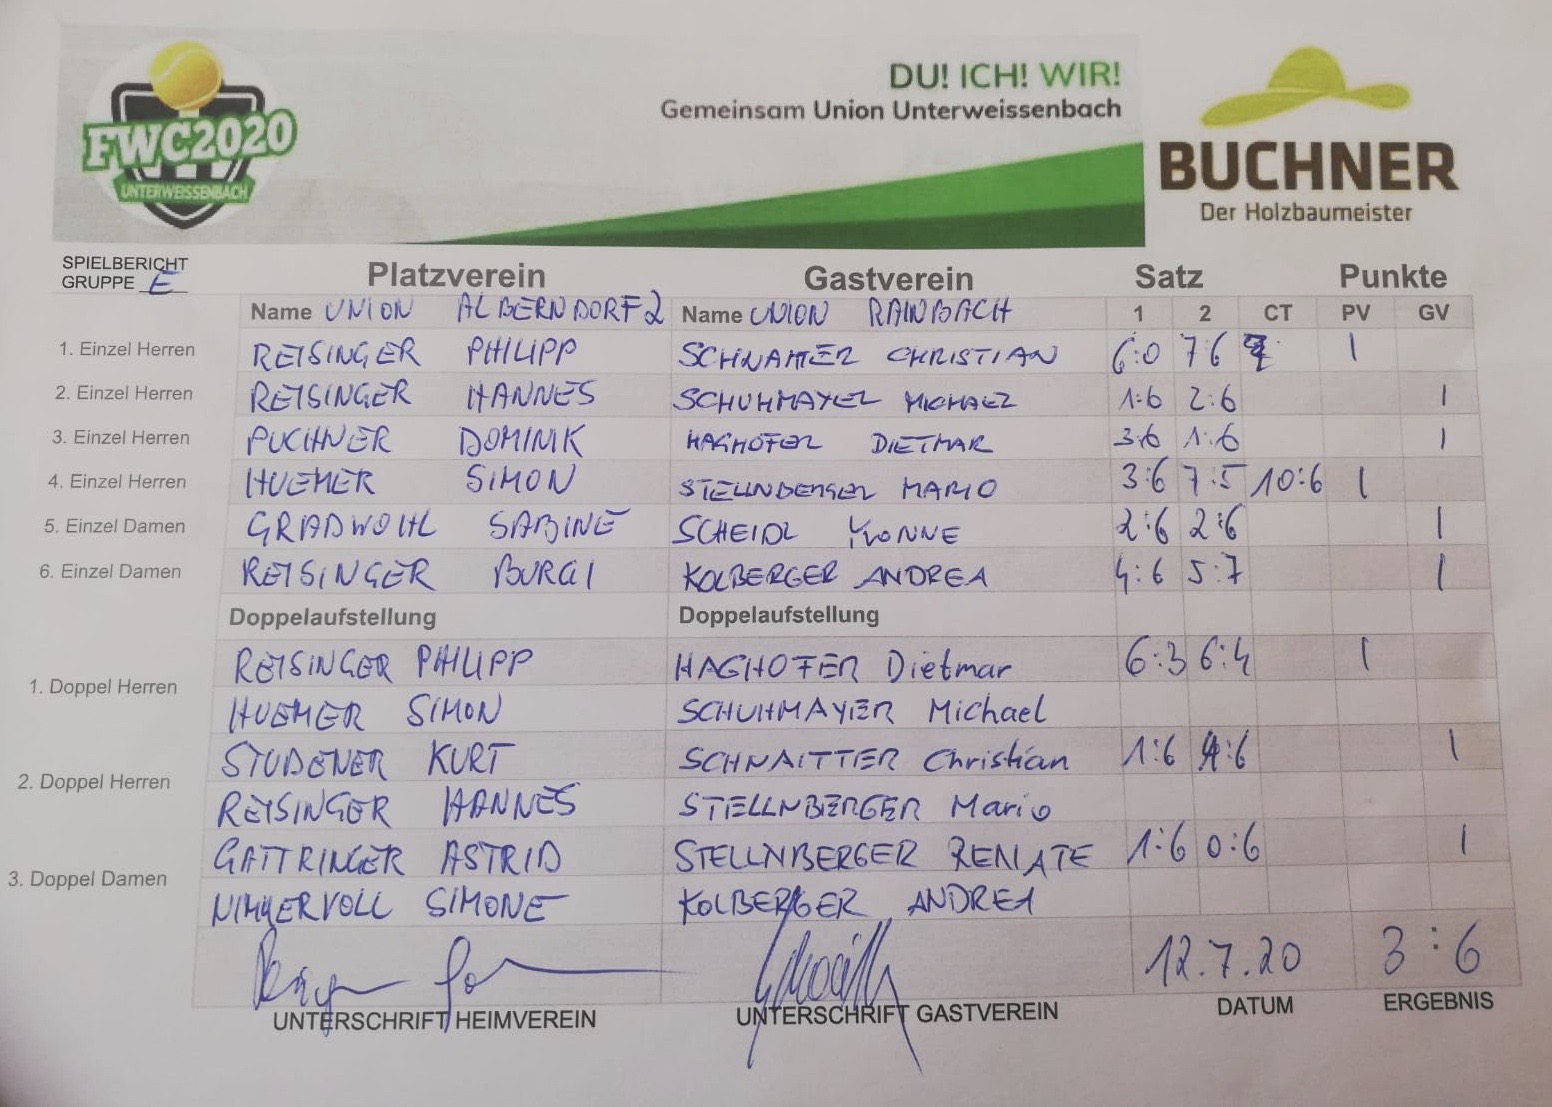 DU! ICH! WIR!
Gemeinsam Union Unterweissenbach
FWC2020
UNTERWEISSENBACH
BUCHNER
Der Holzbaumeister
SPIELBERICHT
GRUPPE E
Platzverein Gastverein Satz Punkte
Name UNION ALBERNDORF 2 Name UNION RAINBACH 1 2 CT PV GV
1. Einzel Herren REISINGER PHILIPP SCHNAITTER CHRISTIAN 6:0 7 6 1
2. Einzel Herren REISINGER HANNES SCHUHMAYER MICHAEL 1:6 2:6 1
3. Einzel Herren PUCHNER DOMINIK HAGHOFER DIETMAR 3:6 1:6 1
4. Einzel Herren HUEMER SIMON STELLNBERGER MARIO 3:6 7:5 10:6 1
5. Einzel Damen GRADWOHL SABINE SCHEIDL YVONNE 2:6 2:6 1
6. Einzel Damen REISINGER BURGI KOLBERGER ANDREA 4:6 5:7 1
Doppelaufstellung Doppelaufstellung
1. Doppel Herren REISINGER PHILIPP HAGHOFER Dietmar 6:3 6:4 1
HUEMER SIMON SCHUHMAYER Michael
2. Doppel Herren STUDENER KURT SCHNAITTER Christian 1:6 4:6 1
REISINGER HANNES STELLNBERGER Mario
3. Doppel Damen GATTRINGER ASTRID STELLNBERGER RENATE 1:6 0:6 1
NIMMERVOLL SIMONE KOLBERGER ANDREA
12.7.20 3:6
UNTERSCHRIFT HEIMVEREIN UNTERSCHRIFT GASTVEREIN DATUM ERGEBNIS